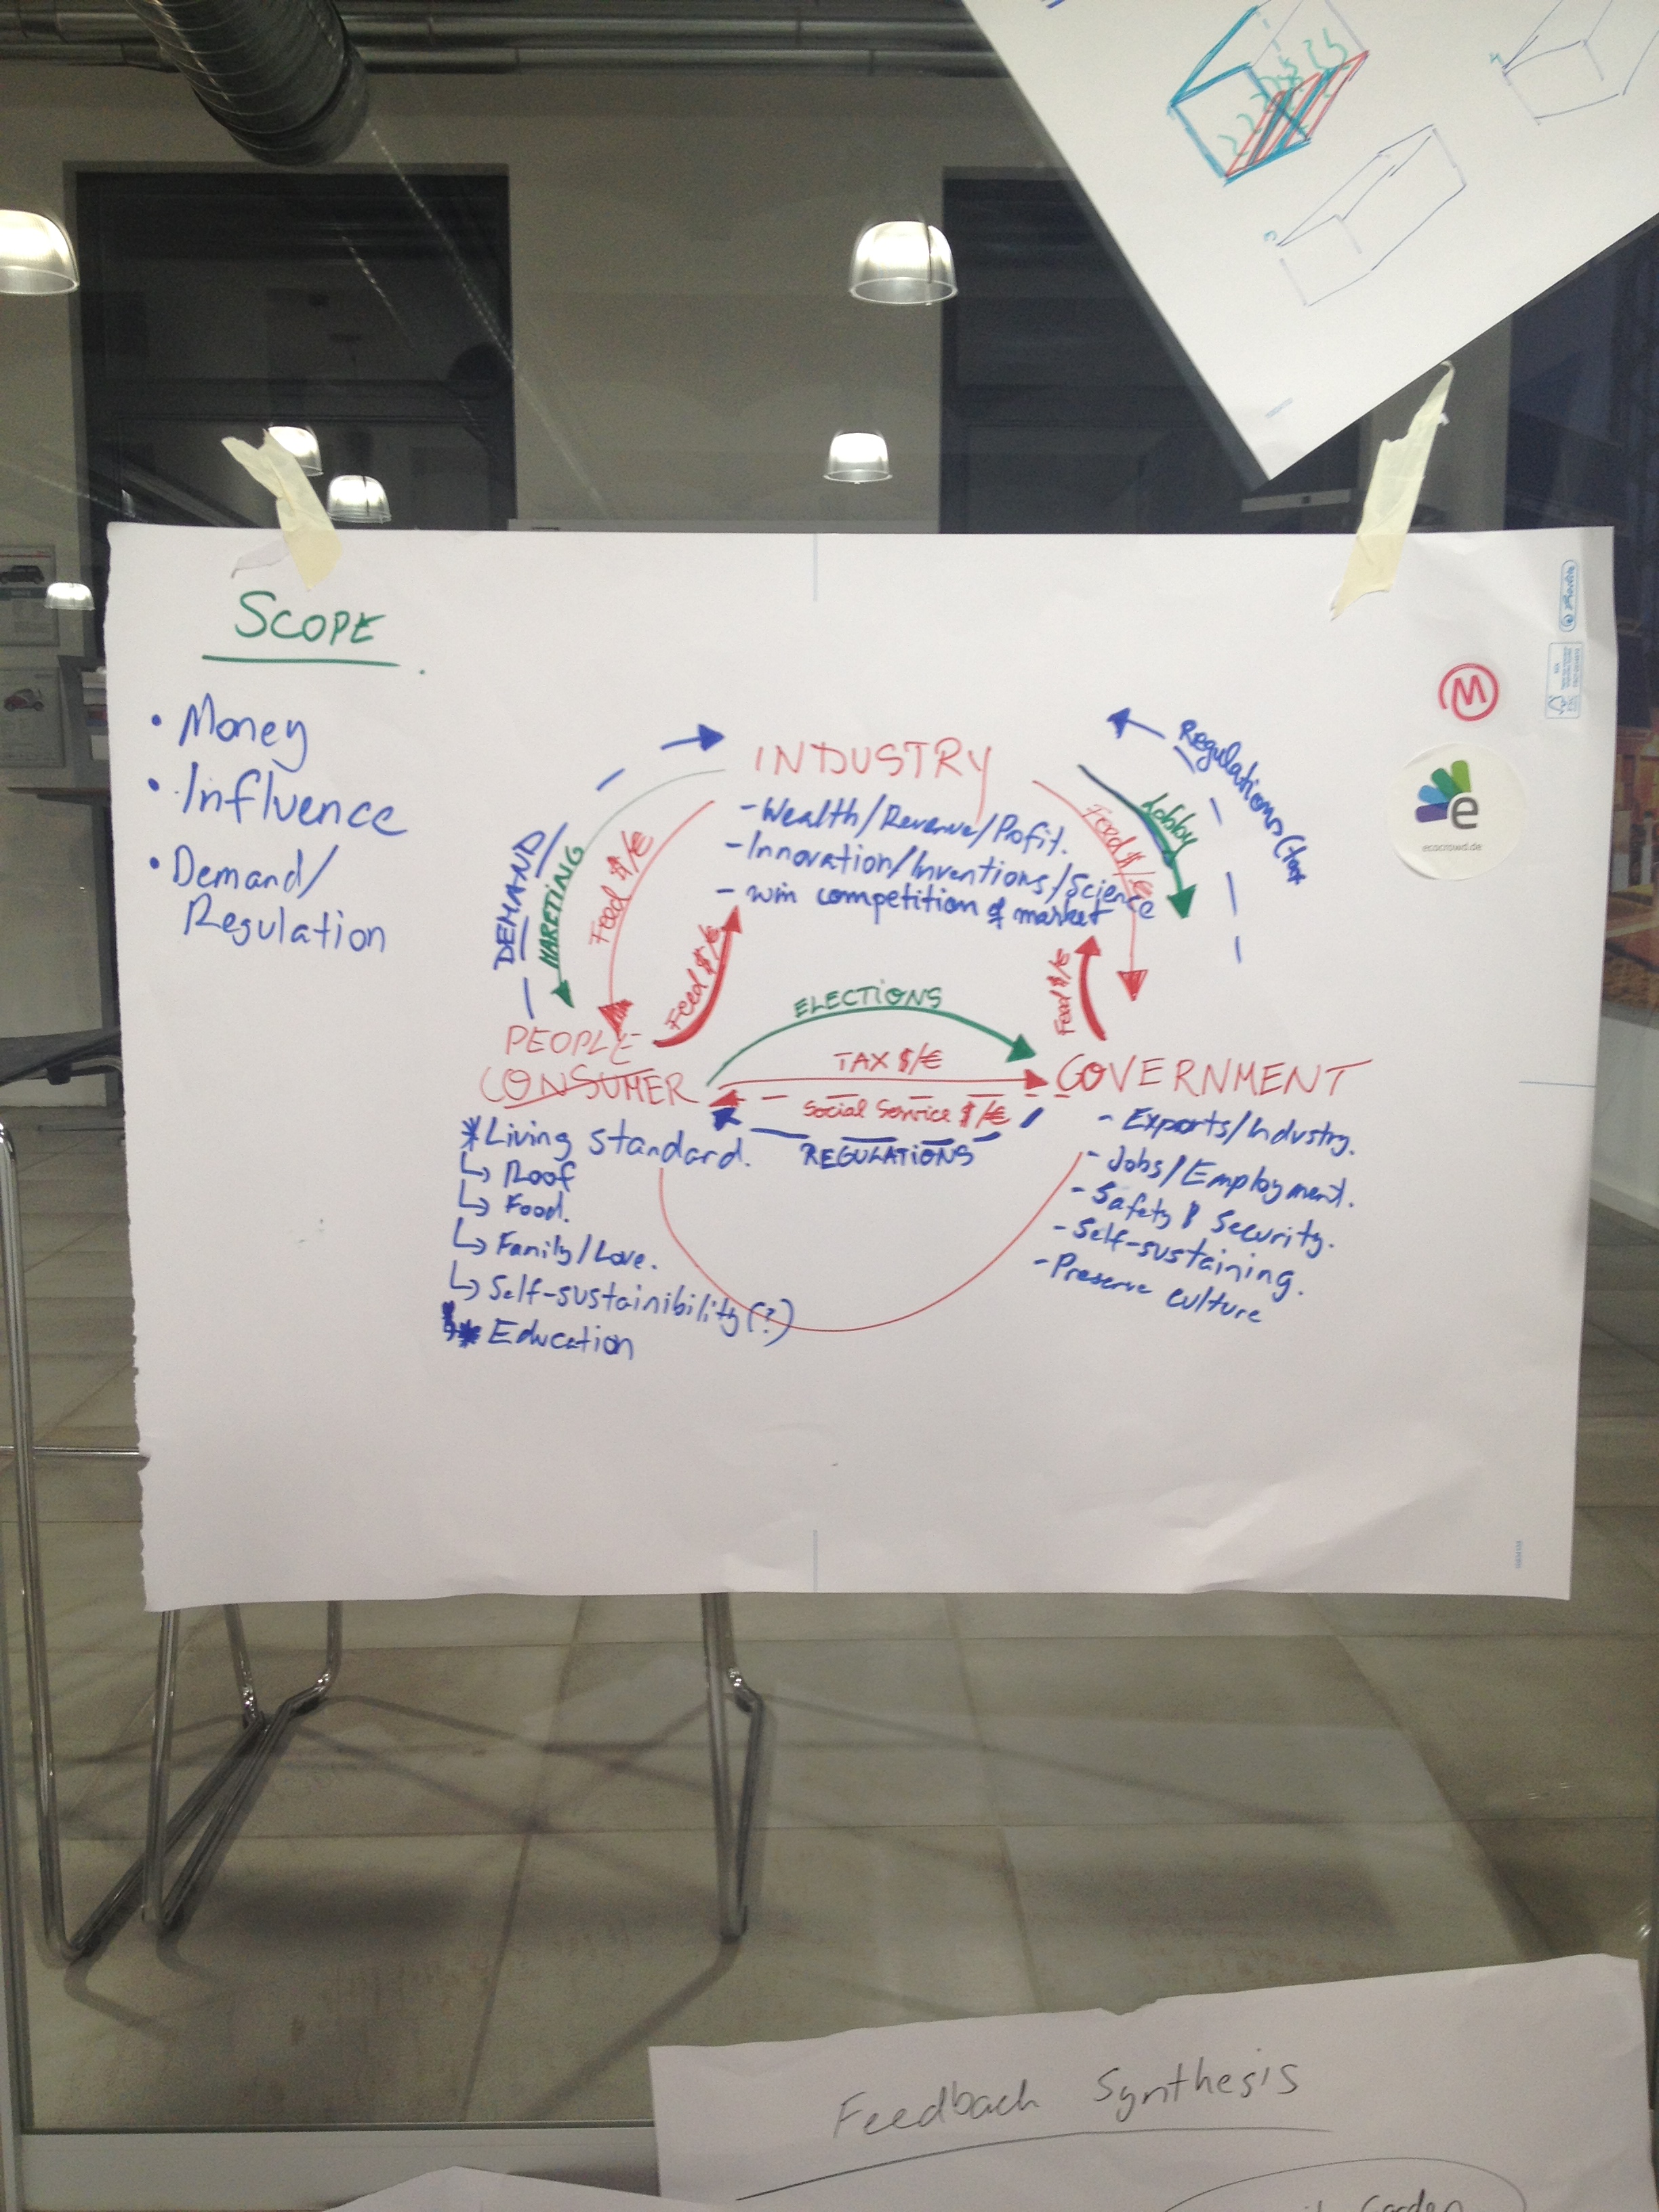 SCOPE
• Money
• Influence
• Demand/
Regulation
INDUSTRY
- Wealth/Revenue/Profit.
- Innovation/Inventions/Science
- win competition of market
DEMAND/
MARETING
Feed $/€
Feed $/€
Feed $/€
Lobby
Regulations
Feed $/€
ELECTIONS
TAX $/€
Social Service $/€
REGULATIONS
PEOPLE
CONSUMER
* Living standard.
↳ Roof
↳ Food.
↳ Family/Love.
↳ Self-sustainibility(?)
↳* Education
GOVERNMENT
- Exports/Industry.
- Jobs/Employment.
- Safety & Security.
- Self-sustaining.
- Preserve culture
M
e
ecocrowd.de
Feedback Synthesis
Garden